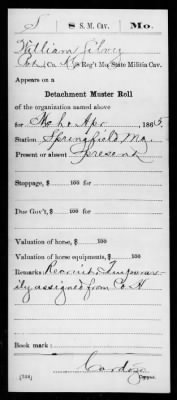 S | 8 S. M. Cav. | Mo.
William Silvey
, Co. K, 8 Reg't Mo. State Militia Cav.
Appears on a
Detachment Muster Roll
of the organization named above
for Mch & Apr, 1863.
Station Springfield Mo.
Present or absent Present
Stoppage, $ 100 for
Due Gov't, $ 100 for
Valuation of horse, $ 100
Valuation of horse equipments, $ 100
Remarks: Recruit Temporar-
ily assigned from Co. H
Book mark:
Cardozo
Copyist.